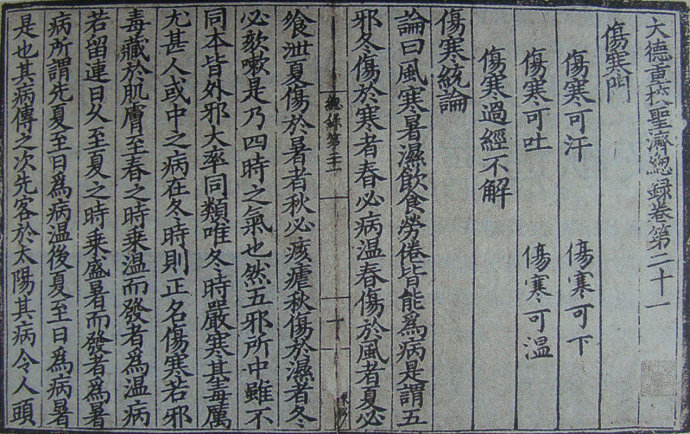 大德重校聖濟總錄卷第二十一
傷寒門
傷寒可汗 傷寒可下
傷寒可吐 傷寒可溫
傷寒過經不解
傷寒統論
論曰風寒暑濕飲食勞倦皆能爲病是謂五
邪冬傷於寒者春必病温春傷於風者夏必
總錄卷二十一
飱泄夏傷於暑者秋必痎瘧秋傷於濕者冬
必欬嗽是乃四時之氣也然五邪所中雖不
同本皆外邪大率同類唯冬時嚴寒其毒厲
尤甚人或中之病在冬時則正名傷寒若邪
毒藏於肌膚至春之時乘温而發者爲温病
若留連日久至夏之時乘盛暑而發者爲暑
病所謂先夏至日爲病温後夏至日爲病暑
是也其病傳之次先客於太陽其病令人頭